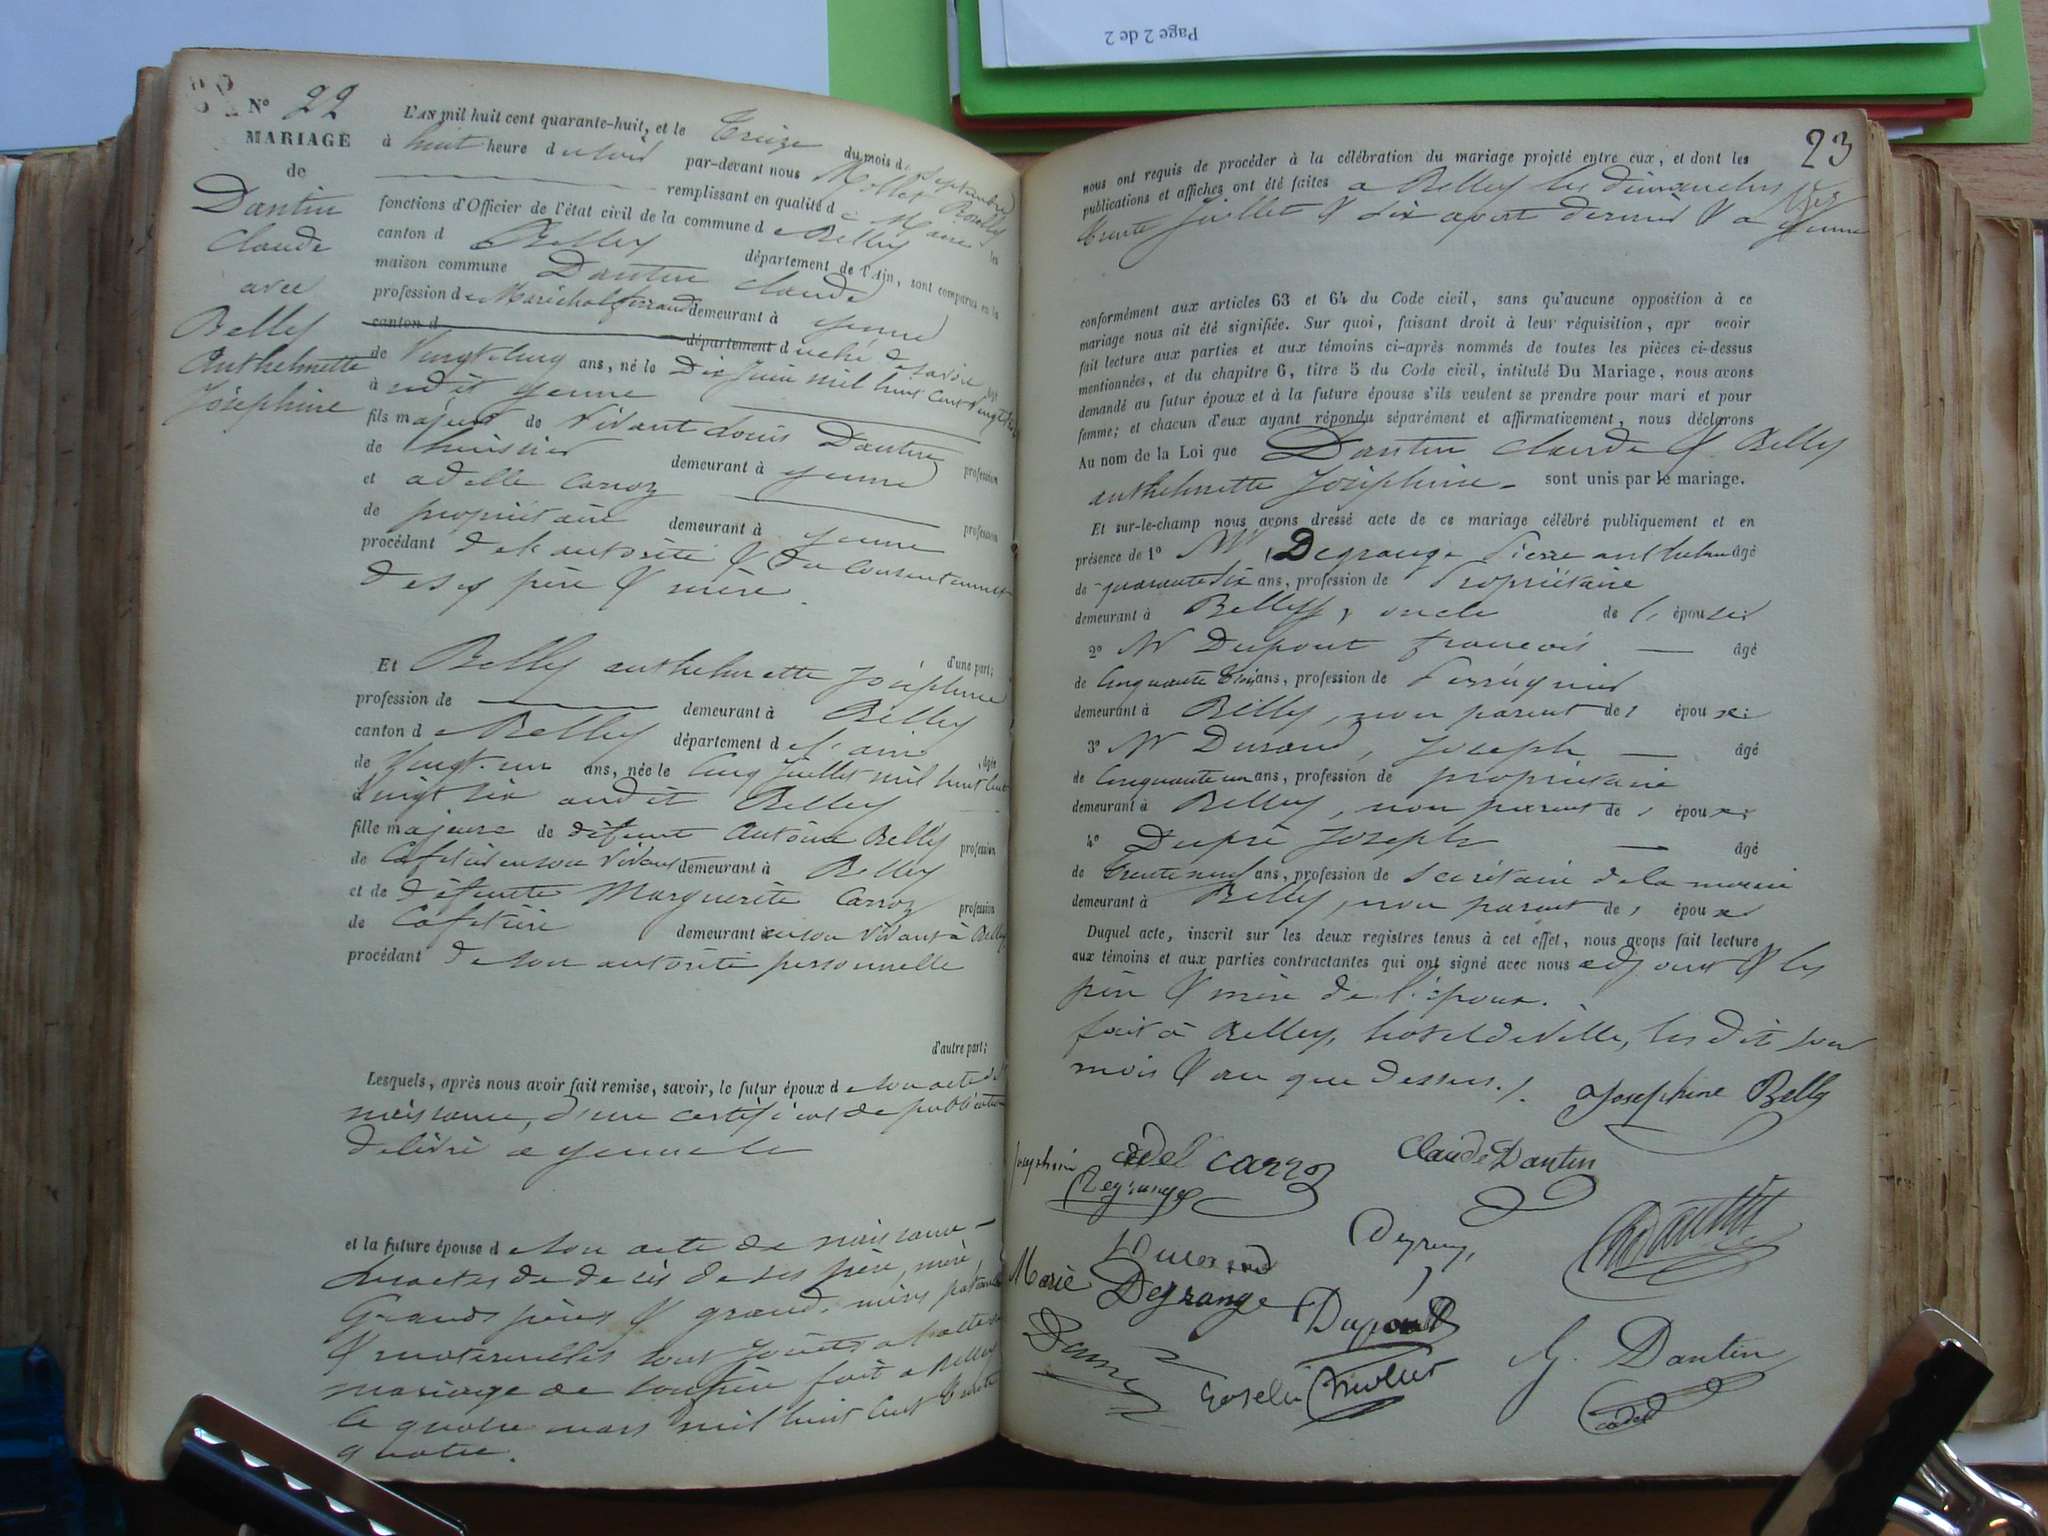 Page 2 de 2
N° 22
MARIAGE
de
Dantin
Claude
avec
Belly
Anthelmette
Joséphine
L'AN mil huit cent quarante-huit, et le Treize du mois de Septembre
à huit heure du soir par-devant nous Mollet
remplissant en qualité de Maire les
fonctions d'Officier de l'état civil de la commune de Belley
canton de Belley département de l'Ajn, sont comparus en la
maison commune Dantin Claude
profession de Maréchal ferrand demeurant à yenne
canton d département duché de Savoie
de Vingt cinq ans, né le Dix Juin mil huit cent vingt trois
à audit yenne
fils majeur de Vivant Louis Dantin profession
de huissier demeurant à yenne
et adelle Carroz profession
de propriétaire demeurant à yenne
procédant de l'autorité & du consentement
de ses père & mère.
d'une part;
Et Belly anthelmette Joséphine
profession de demeurant à Belley
canton de Belley département de l'ain, âgée
de Vingt-un ans, née le Cinq Juillet mil huit cent
Vingt six audit Belley
fille majeure de défunt Antoine Belly profession
de Cafetier en son vivant demeurant à Belley
et de défunte Marguerite Carroz profession
de Cafetière demeurant en son vivant à Belley
procédant de son autorité personnelle
d'autre part;
Lesquels, après nous avoir fait remise, savoir, le futur époux de son acte de
naissance, d'un certificat de publication
délivré a yenne le
et la future épouse de son acte de naissance
des actes de decès de ses père, mère
Grands pères & grand-mères paternels
& maternelles tout joints a l'acte de
mariage de fait a Belley
le quatre mars mil huit cent trente
quatre.
23
nous ont requis de procéder à la célébration du mariage projeté entre eux, et dont les
publications et affiches ont été faites a Belley les dimanches
trente Juillet & six aout dernier & a yenne
conformément aux articles 63 et 64 du Code civil, sans qu'aucune opposition à ce
mariage nous ait été signifiée. Sur quoi, faisant droit à leur réquisition, apr avoir
fait lecture aux parties et aux témoins ci-après nommés de toutes les pièces ci-dessus
mentionnées, et du chapitre 6, titre 5 du Code civil, intitulé Du Mariage, nous avons
demandé au futur époux et à la future épouse s'ils veulent se prendre pour mari et pour
femme; et chacun d'eux ayant répondu séparément et affirmativement, nous déclarons
Au nom de la Loi que Dantin Claude & Belly
anthelmette Joséphine sont unis par le mariage.
Et sur-le-champ nous avons dressé acte de ce mariage célébré publiquement et en
présence de 1° Mr Degrange Pierre anthelme âgé
de quarante six ans, profession de Propriétaire
demeurant à Belley, oncle de l' épouse
2° Mr Dupont françois âgé
de Cinquante trois ans, profession de Perruquier
demeurant à Belley, non parent des époux
3° Mr Durand, Joseph âgé
de Cinquante un ans, profession de propriétaire
demeurant à Belley, non parent des époux
4° Dupré Joseph âgé
de trente neuf ans, profession de Secrétaire de la mairie
demeurant à Belley, non parent des époux
Duquel acte, inscrit sur les deux registres tenus à cet effet, nous avons fait lecture
aux témoins et aux parties contractantes qui ont signé avec nous adjoint & les
père & mère de l'époux.
fait à Belley, hotel de Ville, les dit jour
mois & an que dessus./.
Josephine Belly
adel carroz
Claude Dantin
Josephine
Degrange
Durand
Marie
Degrange
Dupont
G. Dantin